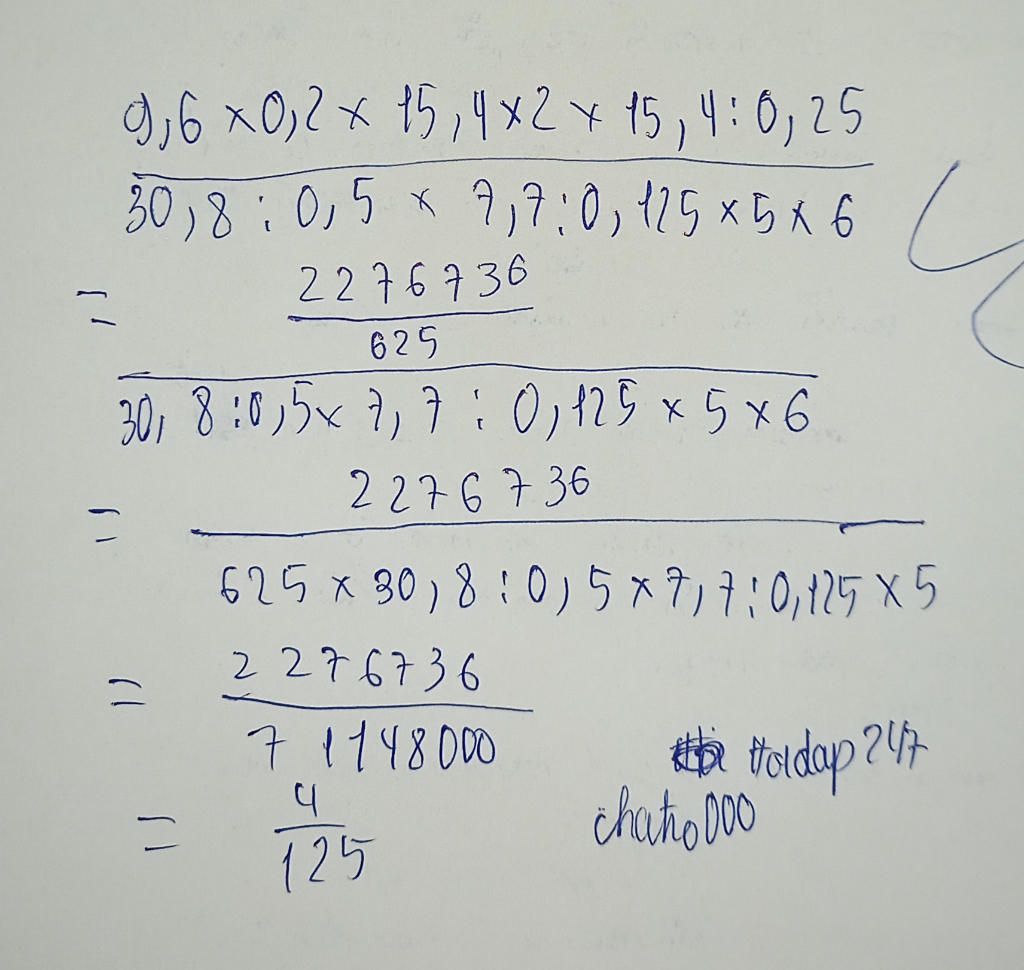 9,6 × 0,2 × 15,4 × 2 × 15,4 : 0,25
30,8 : 0,5 × 7,7 : 0,125 × 5 × 6
= 2276736
625
30,8 : 0,5 × 7,7 : 0,125 × 5 × 6
= 2276736
625 × 30,8 : 0,5 × 7,7 : 0,125 × 5
= 2276736
71148000
Hoidap247
= 4
125
chatio000